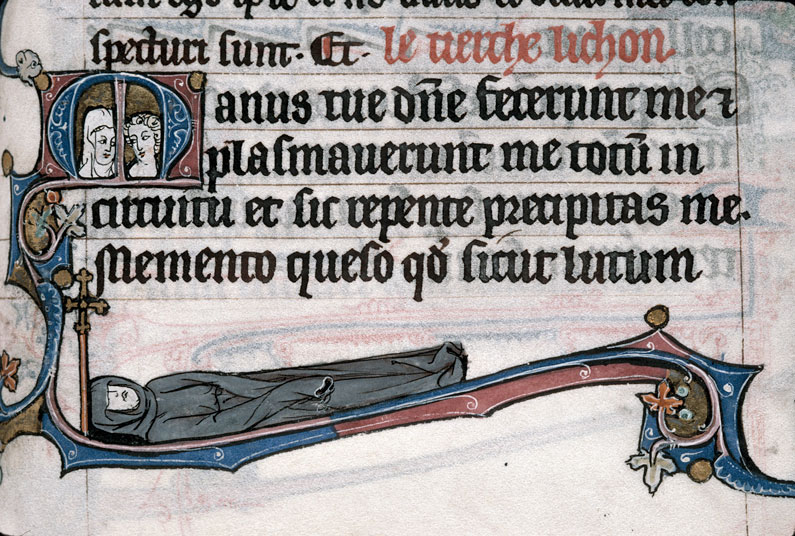 specturi sunt. Et. le tierche lichon
Manus tue dn̄e fecerunt me ⁊
plasmauerunt me totū in
circuitu et sic repente precipitas me.
Memento queso qd̄ sicut lutum